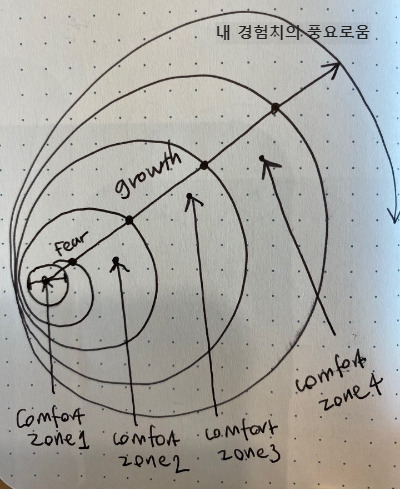 내 경험치의 풍요로움
growth
fear
Comfort
zone1
comfort
zone2
comfort
zone3
comfort
zone4